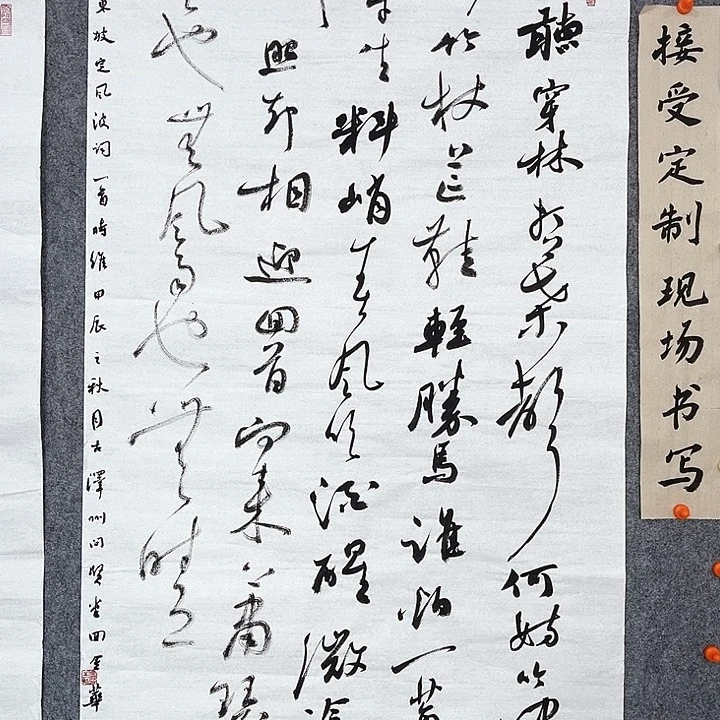 接受定制现场书写
聽穿林打葉聲何妨吟
竹杖芒鞋輕勝馬誰怕一蓑
生料峭春風吹酒醒微冷
照却相迎回首向来蕭瑟
也無風雨也無晴
東坡定風波词一首時維甲辰之秋月古澤州问賢堂田金華